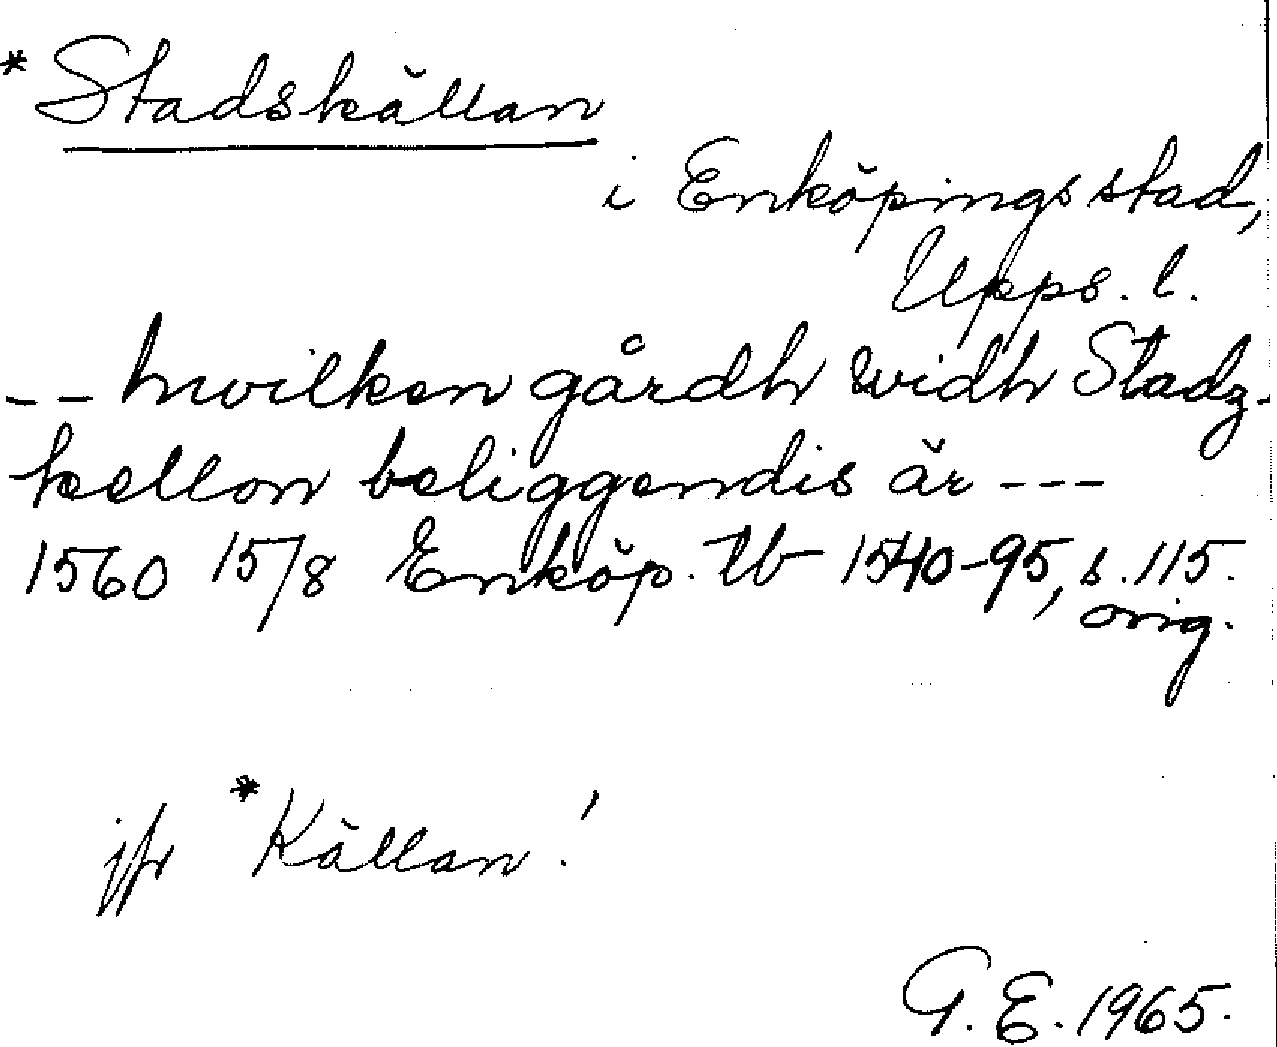 *Stadskällan
i Enköpings stad,
Upps. l.
-- hwilken gårdh widh Stadz-
kellon beliggendis är ---
1560 15/8 Enköp. tb 1540-95, s. 115.
orig.
jfr *Källan!
G. E. 1965.